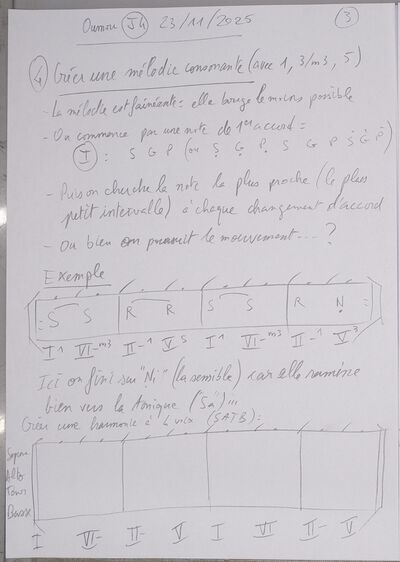 Oumou J4 23/11/2025 3
4 Créer une mélodie consonante (avec 1, 3/m3, 5)
- La mélodie est fainéante = elle bouge le moins possible
- On commence par une note de 1er accord =
I : S G P (ou Ṣ G̣ P̣ S G P Ṡ Ġ Ṗ)
- Puis on cherche la note la plus proche (le plus
petit intervalle) à chaque changement d'accord
- Ou bien on poursuit le mouvement... ?
Exemple
S S R R S S R Ṇ
I¹ VI-m3 II-1 V5 I1 VI-m3 II-1 V3
Ici on finit sur "Ni" (la sensible) car elle ramène
bien vers la tonique ("Sa") !!!
Créer une harmonie à 4 voix (SATB) :
Soprano
Alto
Tenor
Basse
I VI- II- V I VI II- V